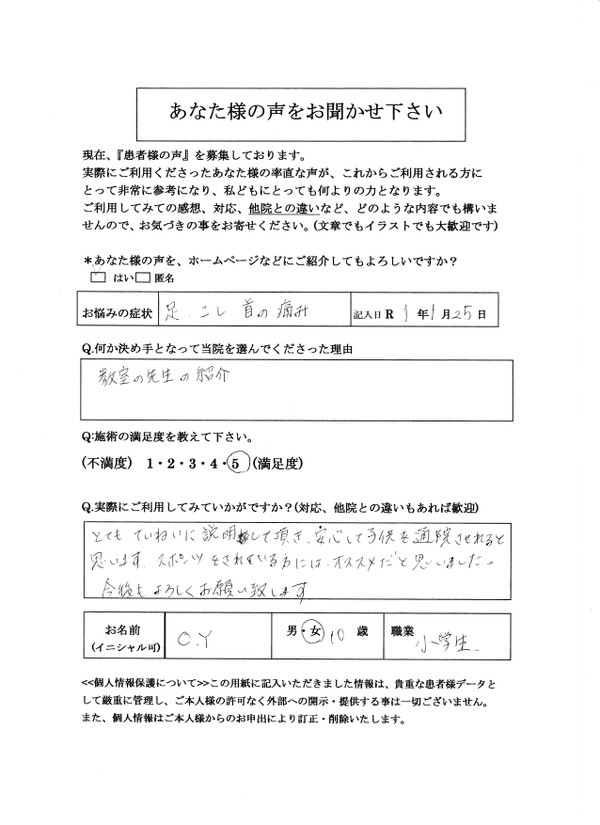 あなた様の声をお聞かせ下さい
現在、『患者様の声』を募集しております。
実際にご利用くださったあなた様の率直な声が、これからご利用される方に
とって非常に参考になり、私どもにとっても何よりの力となります。
ご利用してみての感想、対応、他院との違いなど、どのような内容でも構いま
せんので、お気づきの事をお寄せください。(文章でもイラストでも大歓迎です)
*あなた様の声を、ホームページなどにご紹介してもよろしいですか?
□ はい□ 匿名
お悩みの症状 足、こし 首の痛み 記入日 R 1 年 1 月 25 日
Q.何か決め手となって当院を選んでくださった理由
教室の先生の紹介
Q:施術の満足度を教えて下さい。
(不満度) 1・2・3・4・5 (満足度)
Q.実際にご利用してみていかがですか?(対応、他院との違いもあれば歓迎)
とても ていねいに 説明して頂き、安心して子供を通院させれると
思います。スポーツをされている方には、オススメだと思いました。
今後もよろしくお願い致します
お名前 (イニシャル可) O.Y 男・女 10 歳 職業 小学生
<<個人情報保護について>>この用紙に記入いただきました情報は、貴重な患者様データと
して厳重に管理し、ご本人様の許可なく外部への開示・提供する事は一切ございません。
また、個人情報はご本人様からのお申出により訂正・削除いたします。